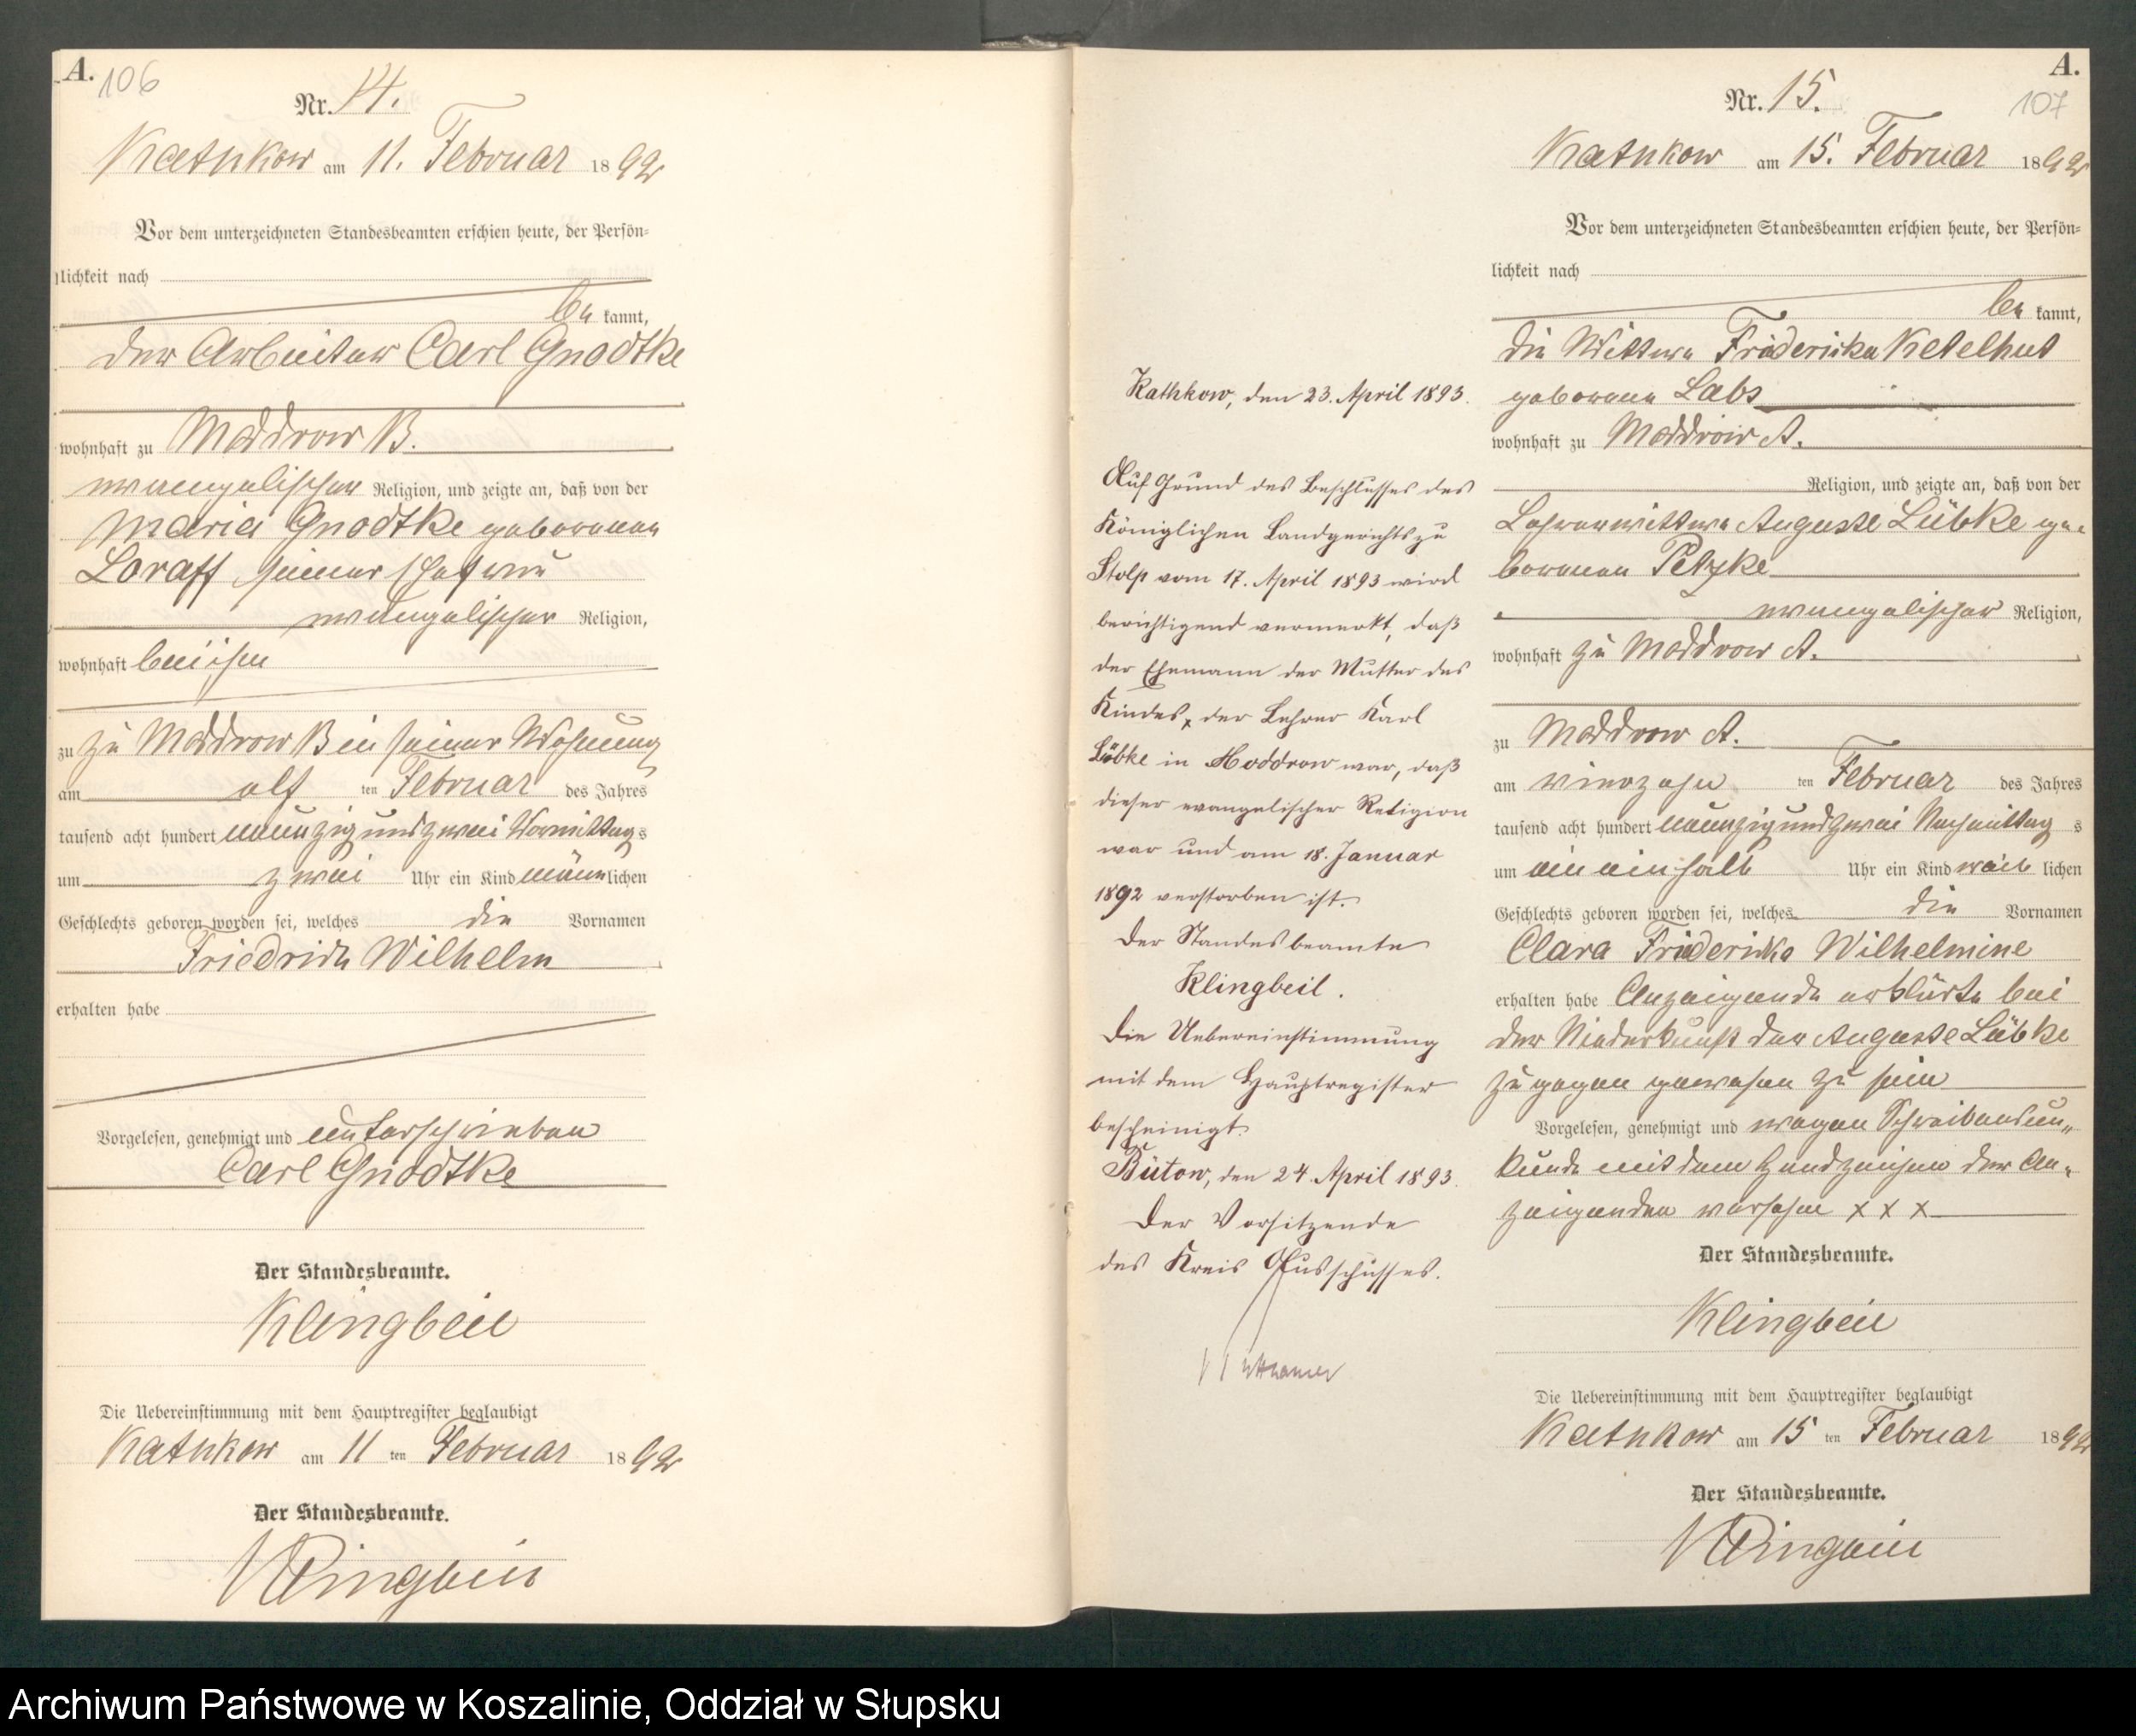 A.
106
Nr. 14.
Kathkow am 11. Februar 1892
Vor dem unterzeichneten Standesbeamten erschien heute, der Persön-
lichkeit nach
be kannt,
der Arbeiter Carl Gnodtke
wohnhaft zu Moddrow B.
evangelischer Religion, und zeigte an, daß von der
Maria Gnodtke geborenen
Loraff seiner Ehefrau
evangelischer Religion,
wohnhaft bei ihm
zu zu Moddrow B in seiner Wohnung
am elf ten Februar des Jahres
tausend acht hundert neunzig und zwei Vormittag s
um zwei Uhr ein Kind männ lichen
Geschlechts geboren worden sei, welches die Vornamen
Friedrich Wilhelm
erhalten habe
Vorgelesen, genehmigt und unterschrieben
Carl Gnodtke
Der Standesbeamte.
Klingbeil
Die Uebereinstimmung mit dem Hauptregister beglaubigt
Kathkow am 11 ten Februar 1892
Der Standesbeamte.
Klingbeil
Kathkow, den 23. April 1893.
Auf Grund des Beschlusses des
Königlichen Landgerichts zu
Stolp vom 17. April 1893 wird
berichtigend vermerkt, daß
der Ehemann der Mutter des
Kindes, der Lehrer Karl
Lübke in Moddrow war, daß
dieser evangelischer Religion
war und am 18. Januar
1892 verstorben ist.
Der Standesbeamte
Klingbeil.
Die Uebereinstimmung
mit dem Hauptregister
bescheinigt.
Bütow, den 24. April 1893.
Der Vorsitzende
des Kreis Ausschusses.
A.
107
Nr. 15.
Kathkow am 15. Februar 1892
Vor dem unterzeichneten Standesbeamten erschien heute, der Persön-
lichkeit nach
be kannt,
die Wittwe Friedericke Ketelhut
geborene Labs
wohnhaft zu Moddrow A.
Religion, und zeigte an, daß von der
Lehrerwittwe Auguste Lübke ge-
borenen Petzke
evangelischer Religion,
wohnhaft zu Moddrow A.
zu Moddrow A.
am vierzehn ten Februar des Jahres
tausend acht hundert neunzig und zwei Nachmittag s
um ein ein halb Uhr ein Kind weib lichen
Geschlechts geboren worden sei, welches die Vornamen
Clara Friedericke Wilhelmine
erhalten habe Anzeigende erklärte bei
der Niederkunft der Auguste Lübke
zugegen gewesen zu sein
Vorgelesen, genehmigt und wegen Schreibensun-
kunde mit dem Handzeichen der An-
zeigenden versehen x x x
Der Standesbeamte.
Klingbeil
Die Uebereinstimmung mit dem Hauptregister beglaubigt
Kathkow am 15 ten Februar 1892
Der Standesbeamte.
Klingbeil
Archiwum Państwowe w Koszalinie, Oddział w Słupsku